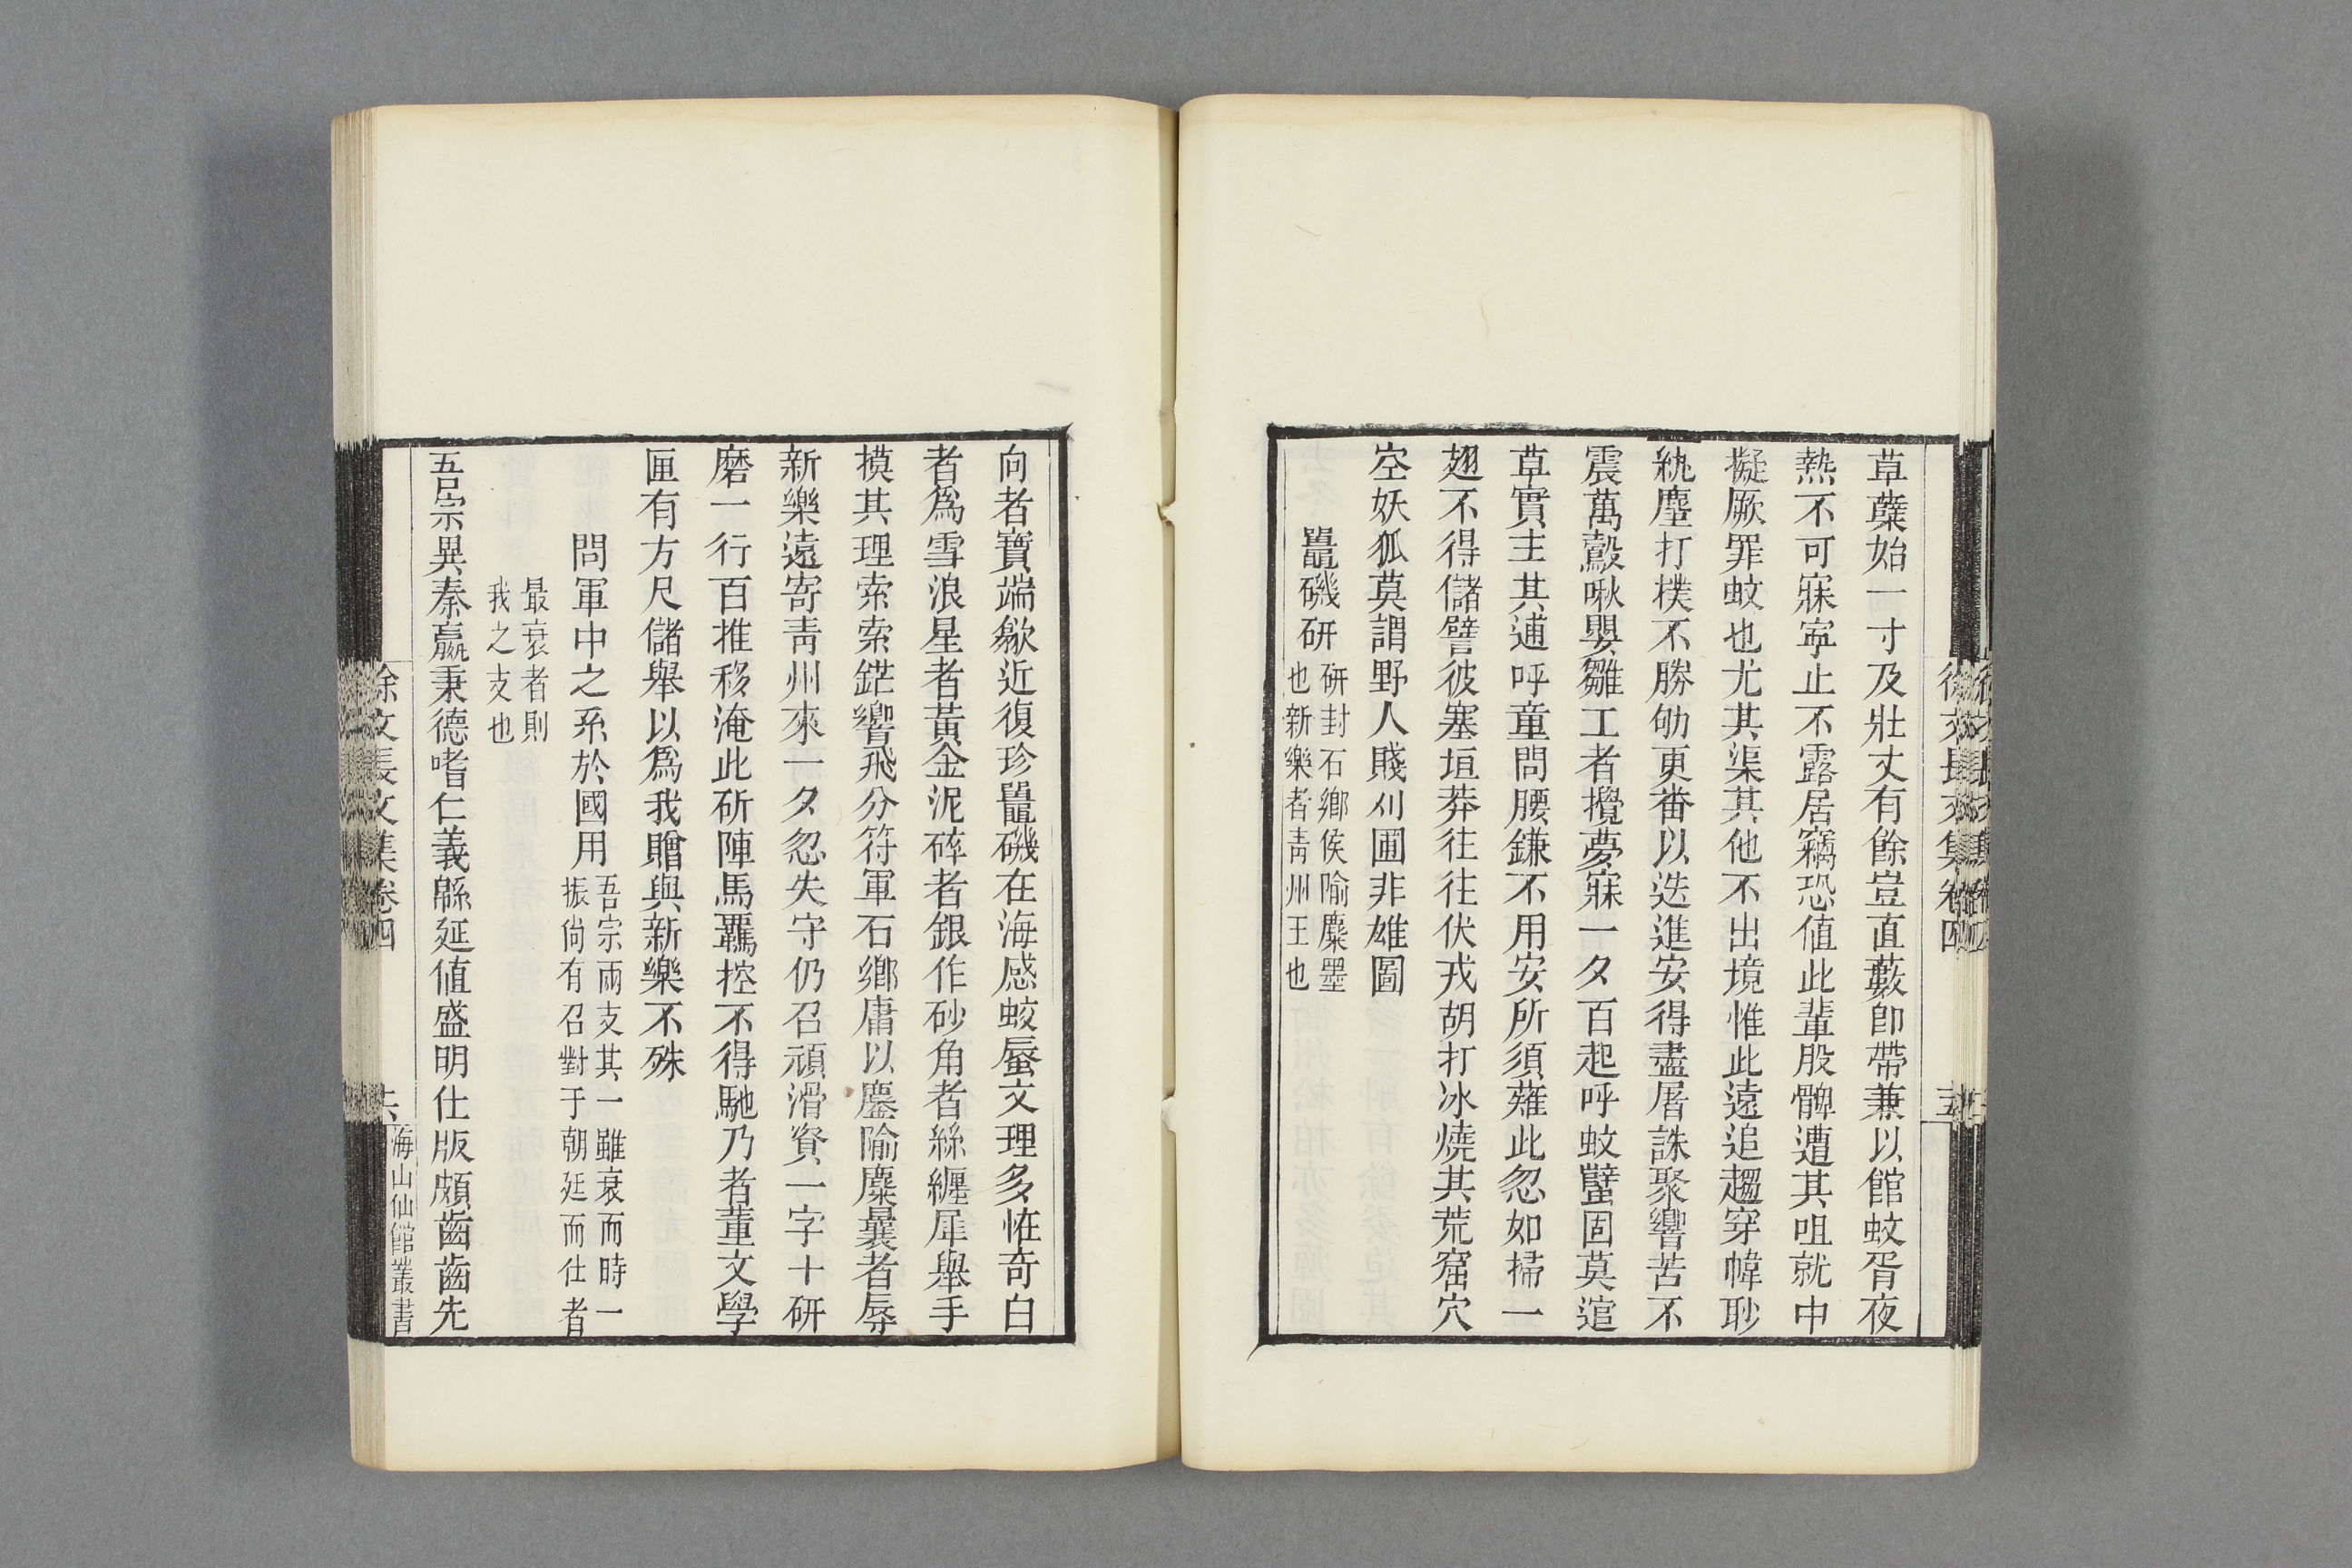 草蘖始一寸及壯丈有餘豈直藪卽帶兼以館蚊胥夜
熱不可寐寧止不露居竊恐值此輩股髀遭其咀就中
擬厥罪蚊也尤其渠其他不出境惟此遠追趨穿幃耿
紈麈打撲不勝劬更番以迭進安得盡屠誅聚響苦不
震萬鷇啾嬰雛工者攪夢寐一夕百起呼蚊蠥固莫逭
草實主其逋呼童問腰鎌不用安所須薙此忽如掃一
翅不得儲譬彼塞垣莽往往伏戎胡打冰燒其荒窟穴
空妖狐莫謂野人賤刈圃非雄圖
鼉磯研
研封石鄉侯隃麋墨
也新樂者青州王也
向者寶端歙近復珍鼉磯在海感蛟蜃文理多恠奇白
者爲雪浪星者黃金泥碎者銀作砂角者絲纏犀舉手
摸其理索索鋩響飛分符軍石鄉庸以鏖隃麋曩者辱
新樂遠寄青州來一夕忽失守仍召頑滑資一字十研
磨一行百推移淹此斫陣馬羈控不得馳乃者董文學
匣有方尺儲舉以爲我贈與新樂不殊
問軍中之系於國用
吾宗兩支其一雖衰而時一
振尙有召對于朝廷而仕者
最衰者則
我之支也
吾宗異秦嬴秉德嗜仁義緜延值盛明仕版頗齒齒先
徐文長文集卷四
五
徐文長文集卷四
六
海山仙館叢書